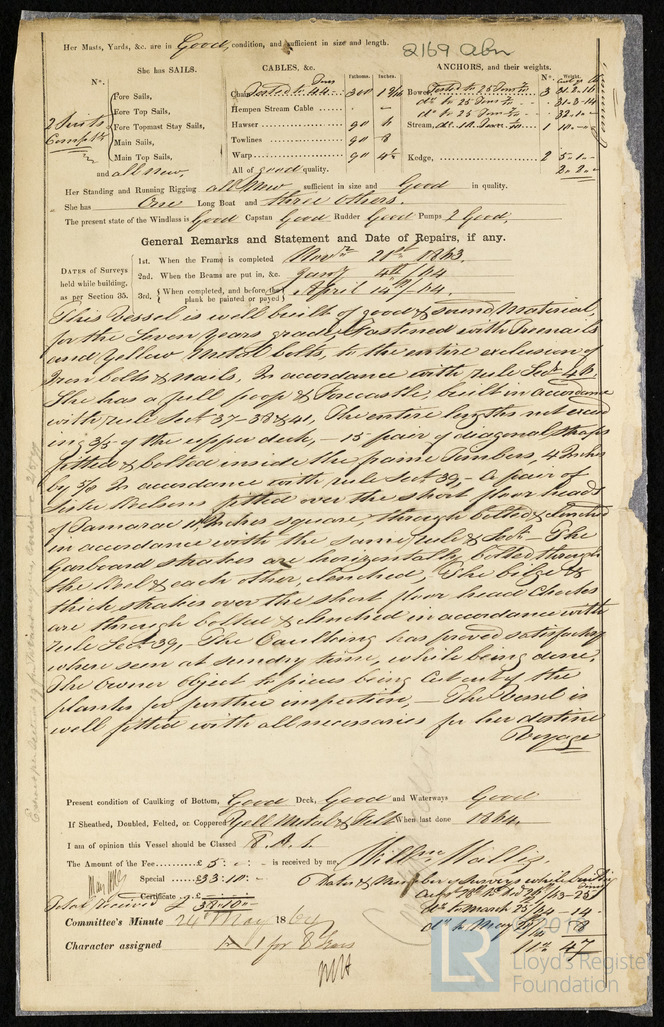 Her Masts, Yards, &c. are in Good, condition, and sufficient in size and length.
2169 Abn
She has SAILS.
CABLES, &c.
Fathoms.
Inches.
ANCHORS, and their weights.
No.
Weight.
No.
Fore Sails,
Fore Top Sails,
Fore Topmast Stay Sails,
Main Sails,
Main Top Sails,
2 Suits Complete
and all New,
Chain Tested to 44 Tons 300
Hempen Stream Cable
Hawser 90 6
Towlines 90 8
Warp 90 4½
All of good quality.
Bower Tested to 25 Tons 3 31.2.16
do to 25 Tons 31.3.14
do to 25 Tons 32.1.
Stream, do 1 10.
Kedge, 2 5.1.
2.2.
Her Standing and Running Rigging all New sufficient in size and Good in quality.
She has One Long Boat and three others.
The present state of the Windlass is Good Capstan Good Rudder Good Pumps 2 Good,
General Remarks and Statement and Date of Repairs, if any.
DATES of Surveys held while building, as per Section 35.
1st. When the Frame is completed Novr 21st 1863.
2nd. When the Beams are put in, &c. Jany 4th /64
3rd, When completed, and before the plank be painted or payed April 14th /64.
This Vessel is well built of good & sound Material,
for the Seven Years grade, fastened with Treenails
and Yellow Metal bolts, to the entire exclusion of
Iron bolts & nails, In accordance with rule Sect 46
She has a full poop & Forecastle, built in accordance
with rule Sect 37-38 & 41, The entire lengths not exceed
ing 3/5 of the upper deck, - 15 pair of diagonal straps
fitted & bolted inside the frame Timbers, 4 Inches
by 5/8 In accordance with rule Sect 39, - A pair of
Sister Kelsons fitted over the short floor heads
of Tamarac 11 Inches square, through bolted & clenched
in accordance with the same rule & Sect - The
Garboard strakes are horizontally bolted through
the Keel & each other, clenched, The bilge &
thick strakes over the short floor head Chocks
are through bolted & clenched in accordance with
rule Sect 39, - The Caulking has proved satisfactory
when seen at sundry time, while being done.
The Owner object to pieces being cut out of the
planks for further inspection, - The Vessel is
well fitted with all necessaries for her destine
Voyage
Present condition of Caulking of Bottom, Good Deck, Good and Waterways Good
If Sheathed, Doubled, Felted, or Coppered Yell Metal & Felt When last done 1864.
I am of opinion this Vessel should be Classed 7. A. 1.
The Amount of the Fee.....£ 5 : - : - is received by me,
Special .....£33:10: -
Certificate .. £
Total received £ 38:10:-
Dates & Number of Surveys while building
do to March 25/64 - 14 -
do to May 8
No 47
Committee's Minute 24 May 1864
Character assigned A 1 for 8 Years
LR
Lloyd's Register
Foundation